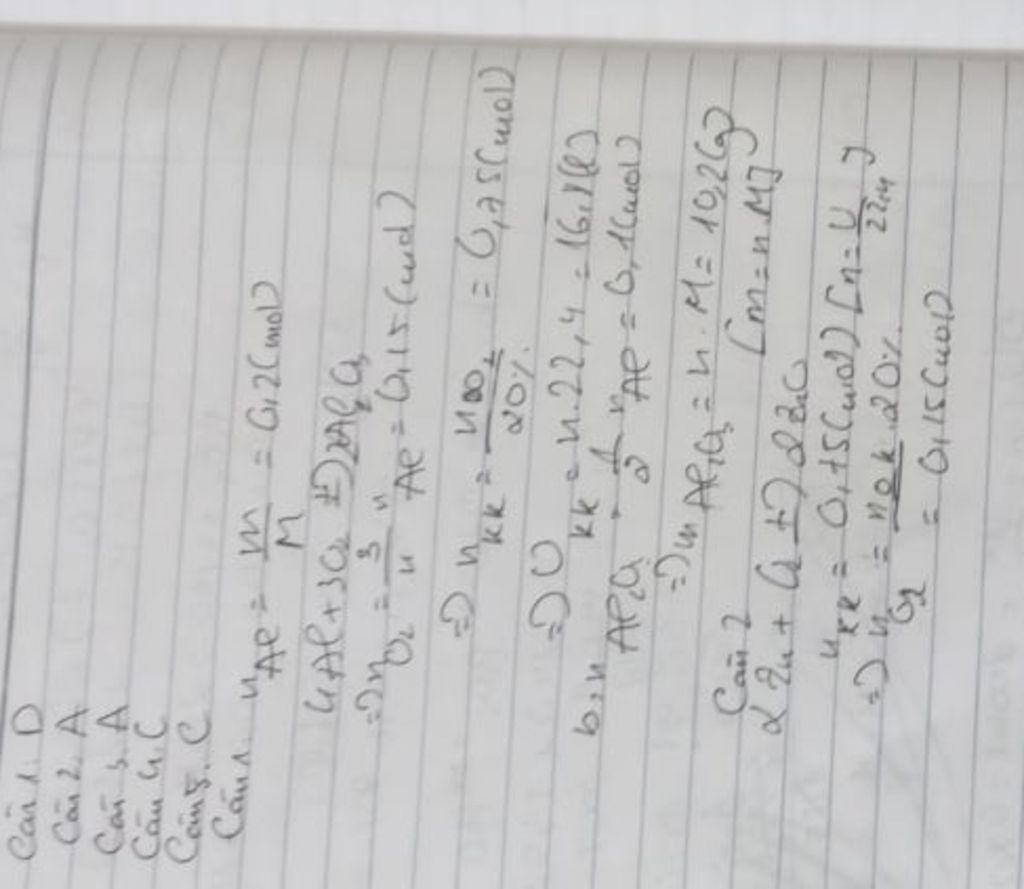 Câu 1. D
Câu 2. A
Câu 3. A
Câu 4. C
Câu 5. C
Câu 1. n Al = m/M = 0,2 (mol)
4Al + 3O2 t°→ 2Al2O3
=> n O2 = 3/4 n Al = 0,15 (mol)
=> n kk = n O2 / 20% = 0,75 (mol)
=> V kk = n . 22,4 = 16,8 (l)
b, n Al2O3 = 1/2 n Al = 0,1 (mol)
=> m Al2O3 = n . M = 10,2 (g)
[m = n . M]
Câu 2
2Zn + O2 t°→ 2ZnO
n kk = 0,75 (mol) [n = V/22,4]
=> n O2 = n kk . 20%
= 0,15 (mol)